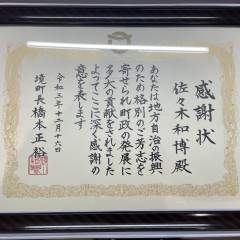 感謝状
佐々木和博殿
あなたは地方自治の振興
のため格別のご芳志を
寄せられ町政の発展に
多大の貢献をされました
よってここに深く感謝の
意を表します
令和三年十二月十六日
境町長橋本正裕